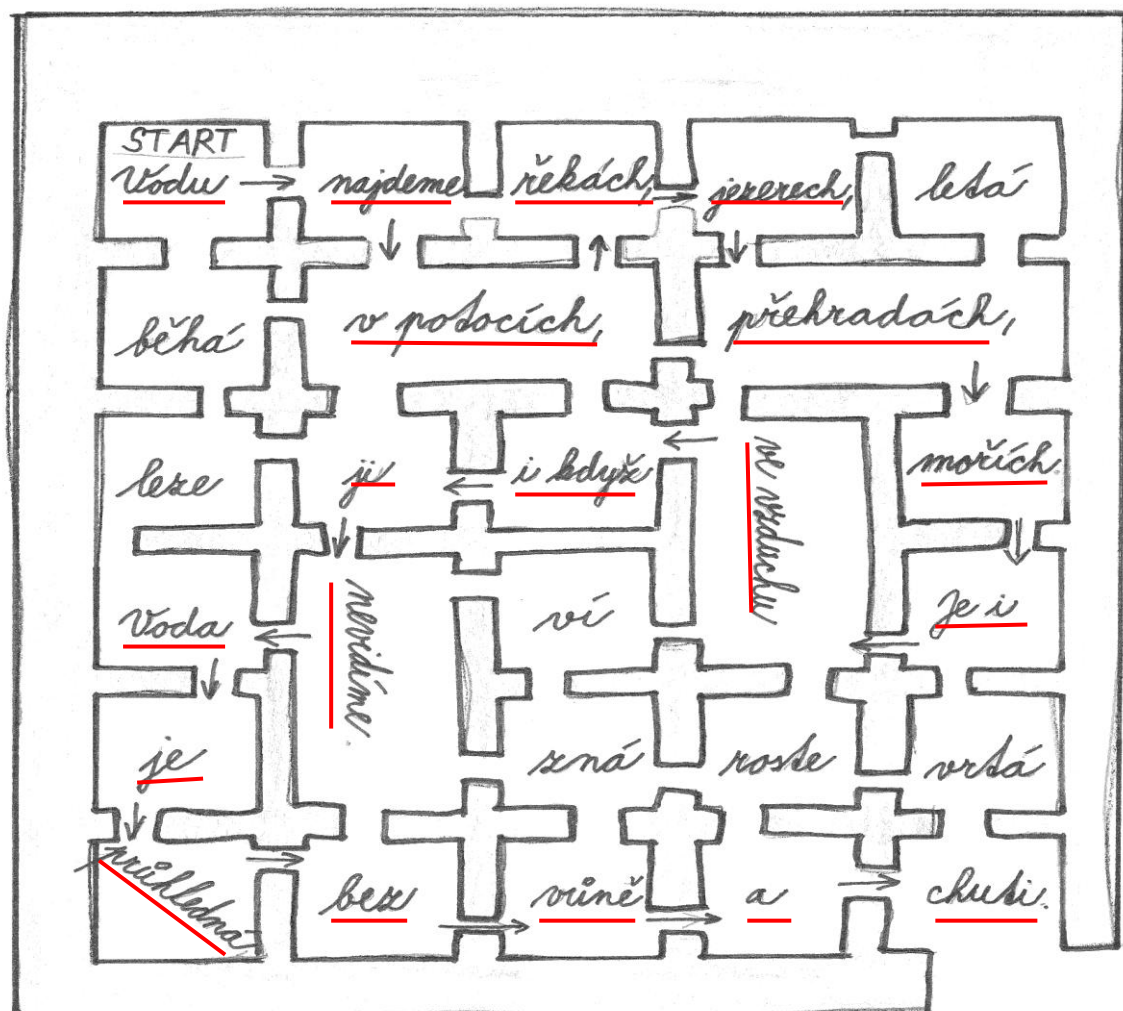 START
Vodu najdeme řekách, jezerech, letá
běhá v potocích, přehradách,
leze ji i když ve vzduchu mořích.
Voda nevidíme. ví Je i
je zná roste vrtá
průhledná, bez vůně a chuti.